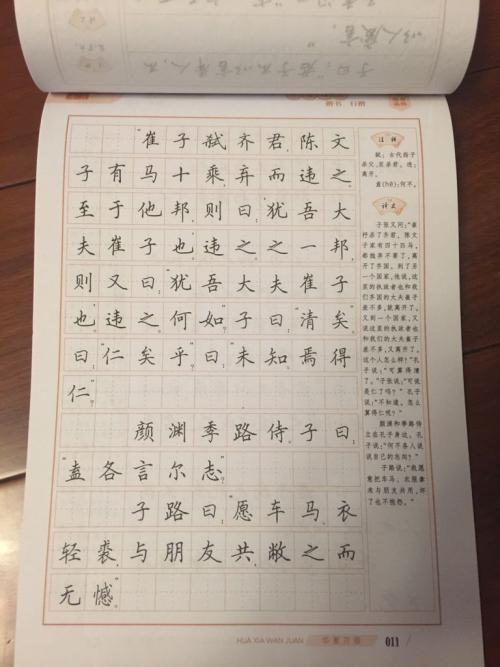 楷书 行楷
崔子弑齐君，陈文
子有马十乘，弃而违之，
至于他邦，则曰：“犹吾大
夫崔子也。”违之。之一邦，
则又曰：“犹吾大夫崔子
也。”违之。何如？”子曰：“清矣。”
曰：“仁矣乎？”曰：“未知，焉得
仁？”
颜渊季路侍，子曰：
“盍各言尔志。”
子路曰：“愿车马、衣
轻裘，与朋友共，敝之而
无憾。”
注释
弑：古代指子
杀父，臣杀君。违：
离开。
盍(hé)：何不。
译文
子张又问：“崔
杼杀了齐君，陈文
子家有四十四马，
都抛弃不要了，离
开了齐国。到了另
一个国家，他说，这
里的执政者也和我
们齐国的大夫崔子
差不多，就离开了。
又到一个国家，又
说这里的执政者也
和我们的大夫崔子
差不多，又离开了。
这个人怎么样？”孔
子说：“可算得清
了。”子张说：“可说
是仁了吗？”孔子
说：“不知道。怎么
算得仁呢？”
颜渊和季路侍
立在孔子身边。孔
子说：“何不各人说
说自己的志向？”
子路说：“我愿
意把车马、衣服拿
来与朋友共用，坏
了也不抱怨。”
HUA XIA WAN JUAN
华夏万卷
011